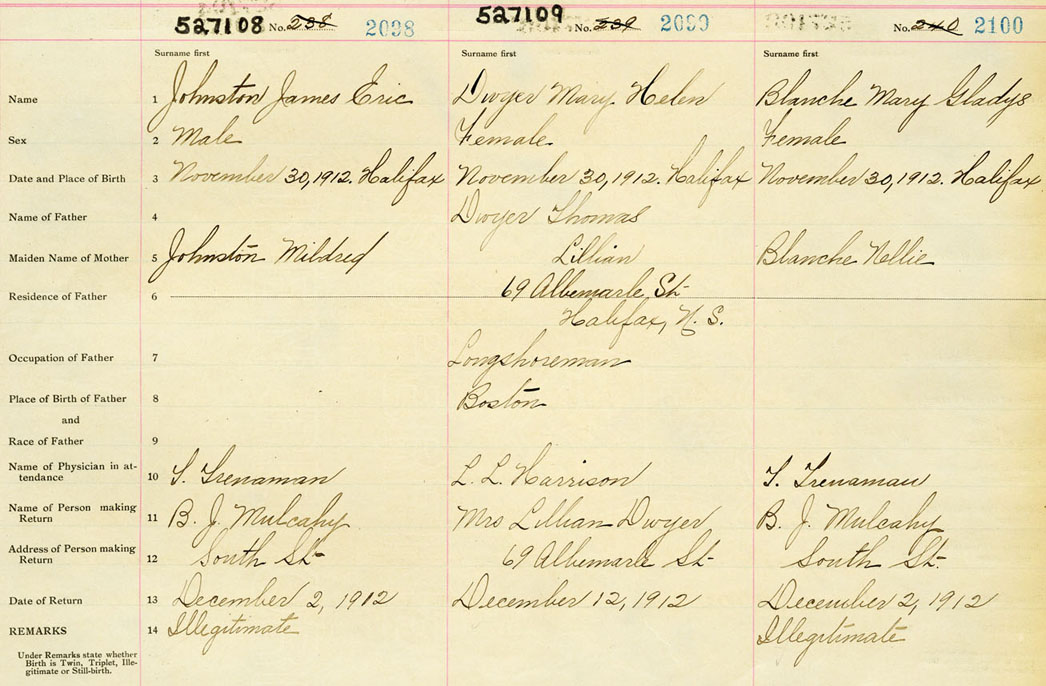 527108 No. 238 2098 527109 No. 239 2099 No. 240 2100
Surname first Surname first Surname first
Name 1 Johnston James Eric Dwyer Mary Helen Blanche Mary Gladys
Sex 2 Male Female Female
Date and Place of Birth 3 November 30, 1912. Halifax November 30, 1912. Halifax November 30, 1912. Halifax
Name of Father 4 Dwyer Thomas
Maiden Name of Mother 5 Johnston Mildred Lillian Blanche Nellie
Residence of Father 6 69 Albemarle St
Halifax, N. S.
Occupation of Father 7 Longshoreman
Place of Birth of Father 8 Boston
and
Race of Father 9
Name of Physician in at-
tendance 10 T. Trenaman L. L. Harrison T. Trenaman
Name of Person making
Return 11 B. J. Mulcahy Mrs Lillian Dwyer B. J. Mulcahy
Address of Person making
Return 12 South St 69 Albemarle St South St.
Date of Return 13 December 2, 1912 December 12, 1912 December 2, 1912
REMARKS 14 Illegitimate Illegitimate
Under Remarks state whether
Birth is Twin, Triplet, Ille-
gitimate or Still-birth.